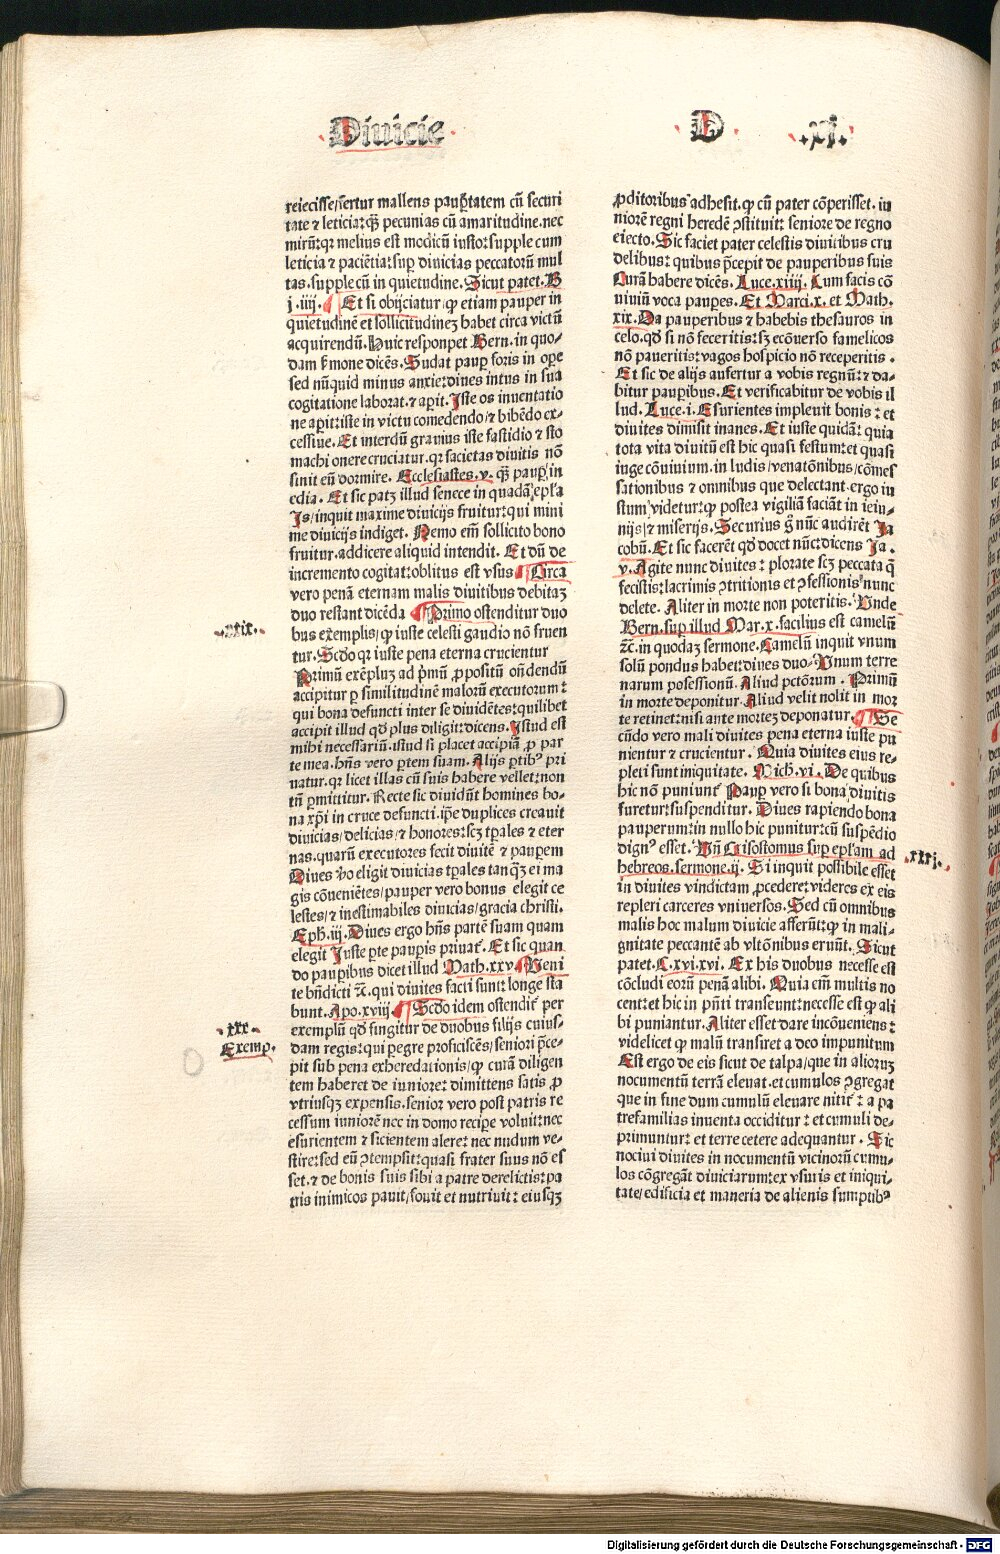 Diuicie
D .xj.
reiecisse/fertur mallens paup̱tatem cū securi
tate ⁊ leticia:qꝫ pecunias cū amaritudine.nec
mirū:qꝛ melius est modicū iusto:supple cum
leticia ⁊ paciētia:suꝑ diuicias peccatorū mul
tas.supple cū in quietudine. Sicut patet. B
j.iiij. Et si obijciatur/ꝙ etiam pauper in
quietudinē et sollicitudineꝫ habet circa victū
acquirendū. Huic responpet Bern. in quo-
dam ẜmone dicēs. Sudat pauꝑ foris in oꝑe
sed nūquid minus anxie:diues intus in sua
cogitatione laborat.⁊ aꝑit. Iste os inuentatio
ne aꝑit:iste in victu comedendo/⁊ bibēdo ex-
cessiue. Et interdū grauius iste fastidio ⁊ sto
machi onere cruciatur.qꝛ sacietas diuitis nō
sinit eū dormire. Ecclesiastes.v. qꝫ pauꝑ/in
edia. Et sic patꝫ illud senece in quadā epl'a
Is/inquit maxime diuicijs fruitur:qui mini
me diuicijs indiget. Nemo em̄ sollicito bono
fruitur.addicere aliquid intendit. Et dū de
incremento cogitat:oblitus est vsus Circa
vero penā eternam malis diuitibus debitaꝫ
duo restant dicēda Primo ostenditur duo
.xxix.
bus exemplis/ꝙ iuste celesti gaudio nō fruen
tur. Scďo qꝛ iuste pena eterna crucientur
Primū exēpluꝫ ad p̄mū ꝓpositū on̄dendū
accipitur ꝑ similitudinē malorū executorum:
qui bona defuncti inter se diuidētes:quilibet
accipit illud qď plus diligit:dicens. Istud est
mihi necessariū.istud si placet accipiā ꝓ par
te mea.hn̄s vero ꝑtem suam. Alijs ꝑtibꝰ pri
uatur.qꝛ licet illas cū suis habere vellet:non
tn̄ ꝑmittitur. Recte sic diuidūt homines bo-
na xp̄i in cruce defuncti.ip̄e duplices creauit
diuicias/delicias/⁊ honores:scꝫ tp̄ales ⁊ eter
nas.quarū executores fecit diuitē ⁊ pauꝑem
Diues ꝟo eligit diuicias tp̄ales tanqꝫ ei ma
gis cōueniētes/pauper vero bonus elegit ce
lestes/⁊ inestimabiles diuicias/gracia christi.
Eph.iij. Diues ergo hn̄s partē suam quam
elegit Iuste ꝑte pauꝑis priuat̄. Et sic quan
do pauꝑibus dicet illud Math.xxv. Veni
te bn̄dicti ⁊c̄.qui diuites facti sunt:longe sta
bunt. Apo.xviij. Scďo idem ostendit̄ per
.xxx.
exemplū qď fingitur de duobus filijs cuius-
Exemp.
dam regis:qui ꝑegre proficiscēs/seniori p̄ce-
pit sub pena exheredationis/ꝙ curā diligen
tem haberet de iuniore:dimittens satis ꝓ
vtriusqꝫ expensis.senior vero post patris re
cessum iuniorē nec in domo reciꝑe voluit:nec
esurientem ⁊ sicientem alere:nec nudum ve-
stire:sed eū ↄtempsit:quasi frater suus nō es
set.⁊ de bonis suis sibi a patre derelictis:pa
tris inimicos pauit/fouit et nutriuit: eiusqꝫ
ꝓditoribus adhesit.ꝙ cū pater cōperisset.iu
niorē regni heredē ↄstituit: seniore de regno
eiecto. Sic faciet pater celestis diuitibus cru
delibus: quibus p̄cepit de pauperibus suis
Curā habere dicēs. Luce.xiiij. Cum facis cō
uiuiū voca pauꝑes. Et Marci.x. et Math.
xix. Da pauperibus ⁊ habebis thesauros in
celo.qď si nō feceritis:sꝫ ecōuerso famelicos
nō paueritis:vagos hospicio nō receperitis.
Et sic de alijs aufertur a vobis regnū:⁊ da-
bitur pauꝑibus. Et verificabitur de vobis il
lud. Luce.i. Esurientes impleuit bonis: et
diuites dimisit inanes. Et iuste quidā: quia
tota vita diuitū est hic quasi festum:et quasi
iuge cōuiuium.in ludis/venatōnibus/cōmes
sationibus ⁊ omnibus que delectant.ergo iu
stum videtur:ꝙ postea vigiliā faciāt in ieiu-
nijs/⁊ miserijs. Securius g̊ nūc audirēt Ja
cobū. Et sic facerēt qď docet nūc:dicens Ja.
v. Agite nunc diuites: plorate scꝫ peccata q̄
fecistis:lacrimis ↄtritionis et ↄfessionis nunc
delete. Aliter in morte non poteritis. Vnde
Bern.suꝑ illud Mar.x.facilius est camelū
⁊c̄.in quodaꝫ sermone. Camelū inquit vnum
solū pondus habet:diues duo. Vnum terre
narum posessionū. Aliud pctōrum. Primū
in morte deponitur. Aliud velit nolit in mor
te retinet:nisi ante morteꝫ deponatur. Se
cūdo vero mali diuites pena eterna iuste pu
nientur ⁊ crucientur. Quia diuites eius re-
pleti sunt iniquitate. Mich.vi. De quibus
hic nō puniunt̄ Pauꝑ vero si bona diuitis
furetur:suspenditur. Diues rapiendo bona
pauperum:in nullo hic punitur:cū suspēdio
dignꝰ esset. Vn̄ Crisostomus suꝑ epl'am ad
.xxxj.
hebreos.sermone.ij. Si inquit possibile esset
in diuites vindictam ꝓcedere:videres ex eis
repleri carceres vniuersos. Sed cū omnibus
malis hoc malum diuicie afferūt:ꝙ in mali-
gnitate peccantē ab vltōnibus eruūt. Sicut
patet. C.xvi.xvi. Ex his duobus necesse est
cōcludi eorū penā alibi. Quia em̄ multis no
cent:et hic in p̄nti transeunt:necesse est ꝙ ali
bi puniantur. Aliter esset dare incōueniens:
videlicet ꝙ malū transiret a deo impunitum
Est ergo de eis sicut de talpa/que in alioruꝫ
nocumentū terrā eleuat.et cumulos ↄgregat
que in fine dum cumulū eleuare nitit̄: a pa
trefamilias inuenta occiditur: et cumuli de-
primuntur:et terre cetere adequantur. Sic
nociui diuites in nocumentū vicinorū cumu-
los cōgregāt diuiciarum:ex vsuris et iniqui-
tate/edificia et maneria de alienis sumptibꝰ
Digitalisierung gefördert durch die Deutsche Forschungsgemeinschaft - DFG